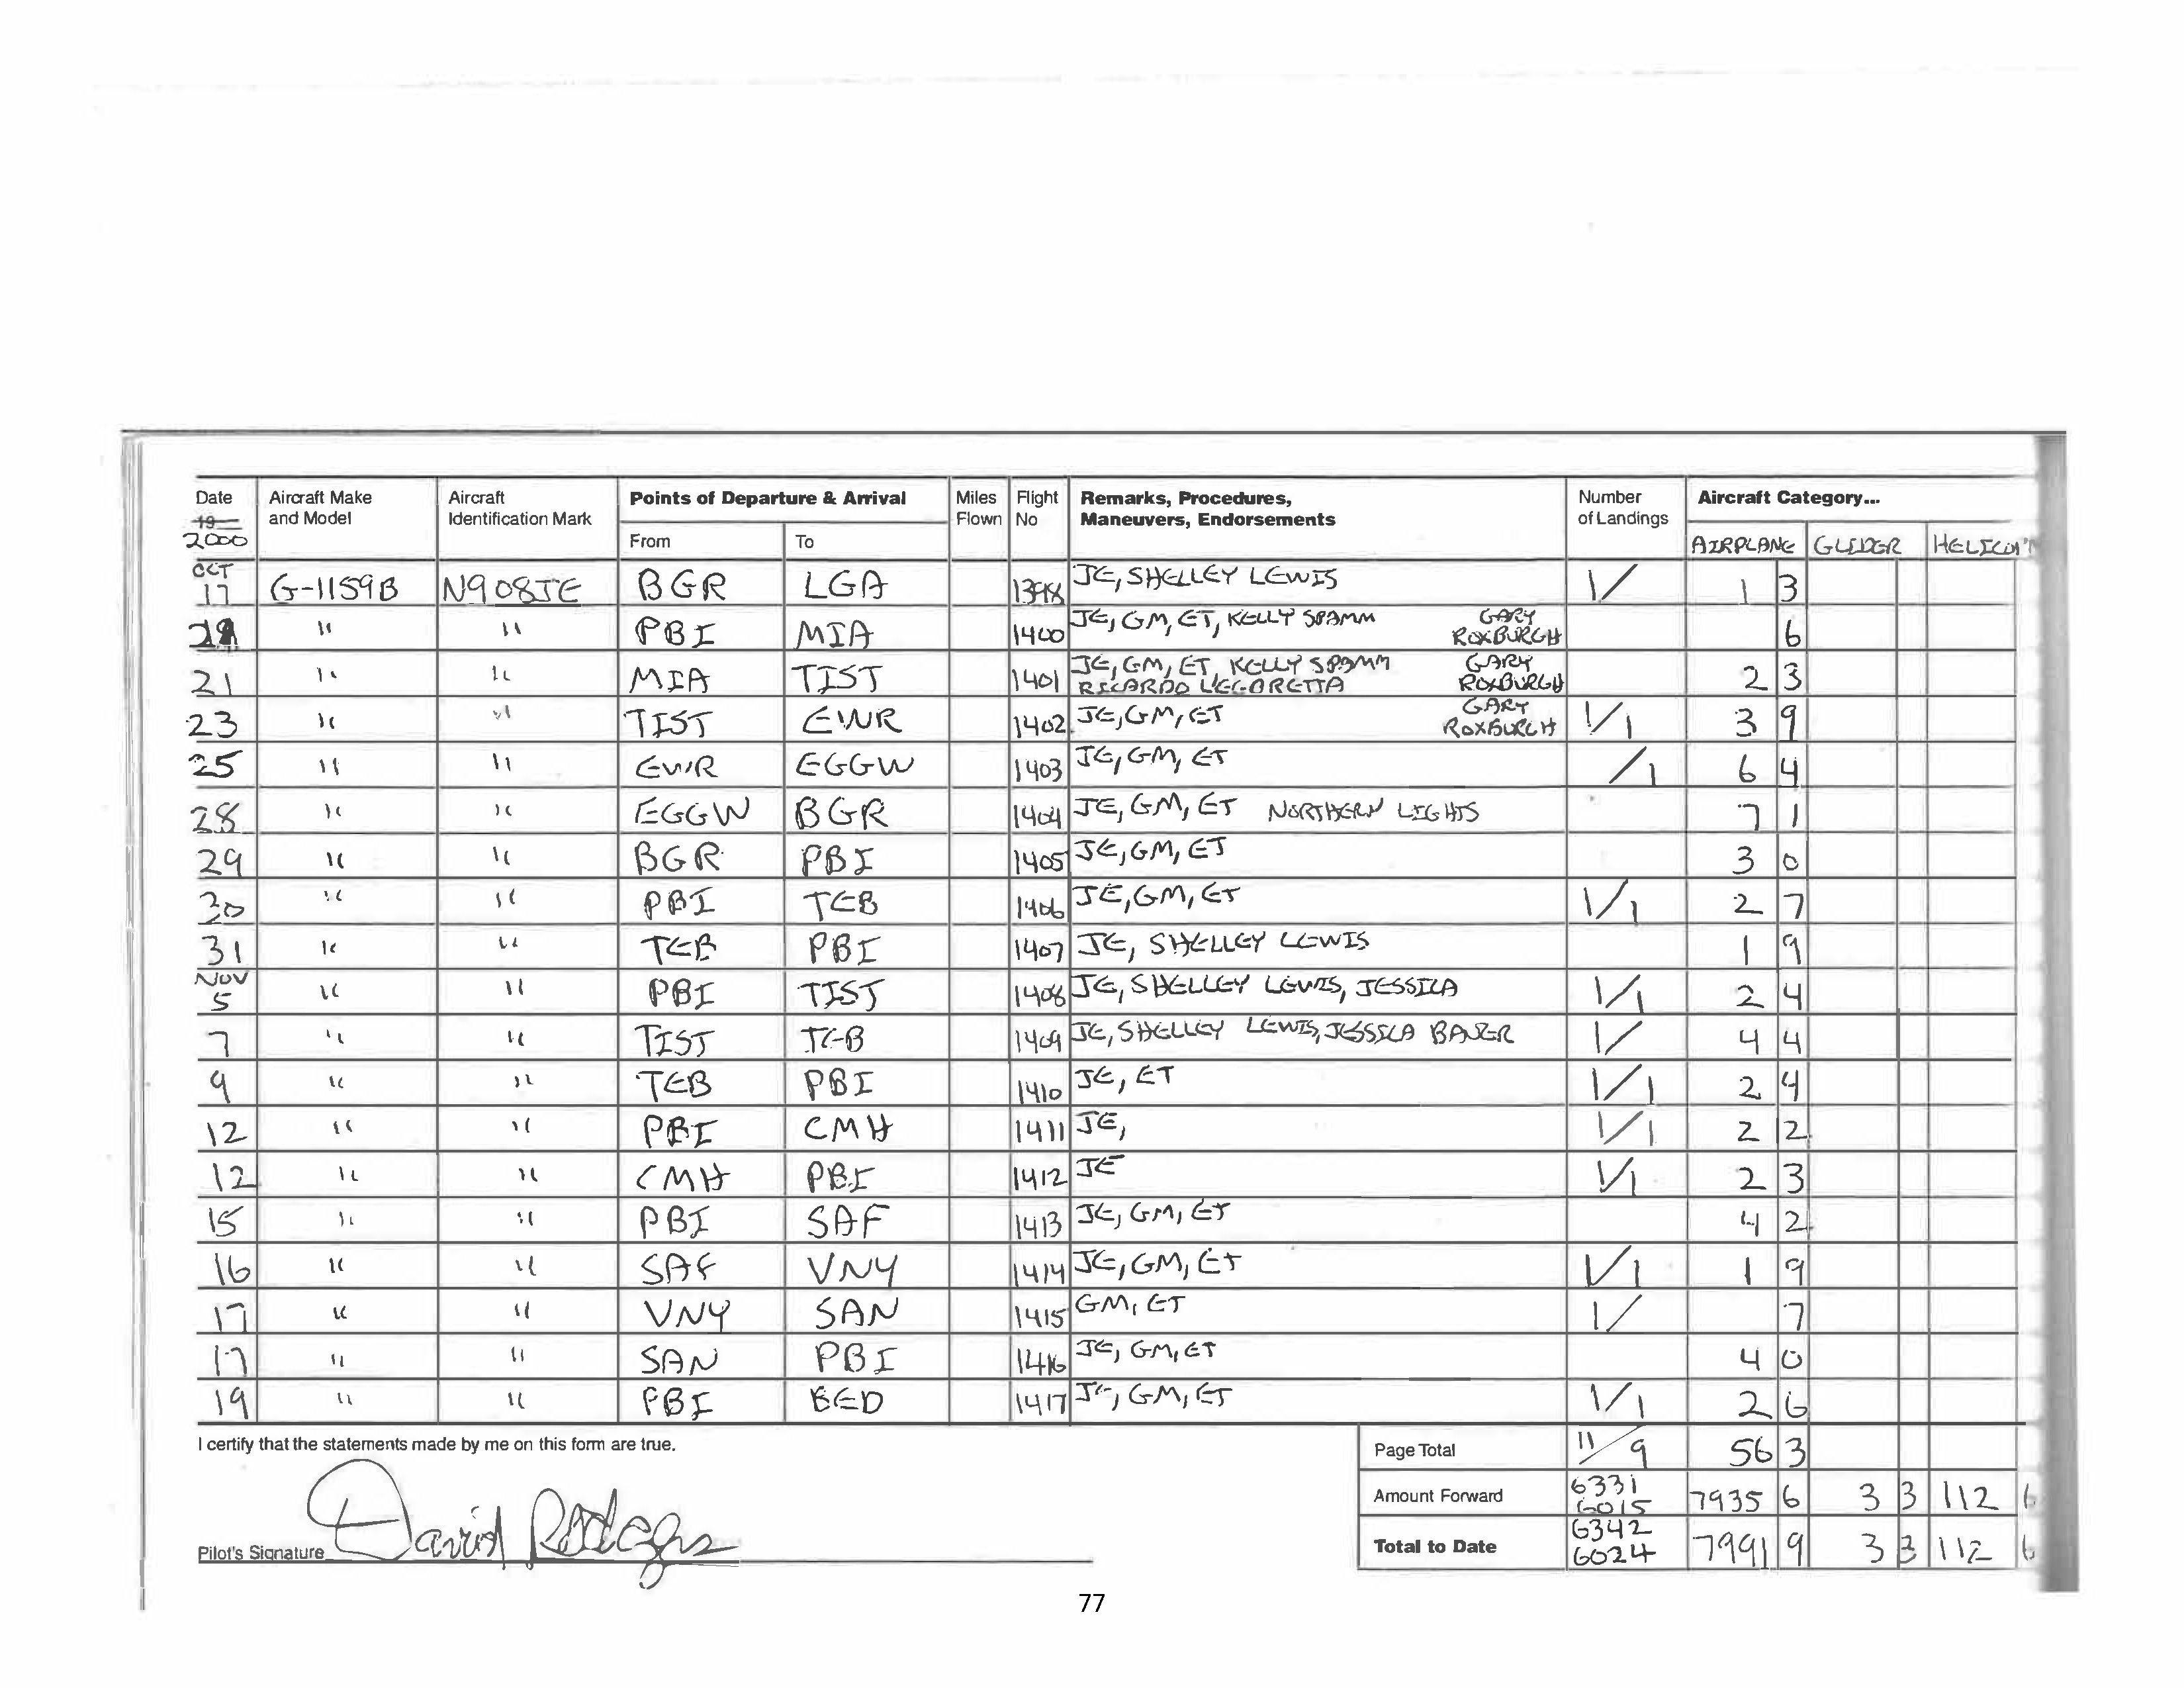 Date Aircraft Make and Model Aircraft Identification Mark Points of Departure & Arrival Miles Flown Flight No Remarks, Procedures, Maneuvers, Endorsements Number of Landings Aircraft Category...
19 2000 From To AIRPLANE GLIDER
OCT 17 G-1159B N908JE BGR LGA JE, SHELLEY LEWIS 1/ 1 3
" " PBI MIA 1400 JE, GM, ET, KELLY SPAMM GARY ROXBURGH 6
21 " " MIA TIST 1401 JE, GM, ET, KELLY SPAMM GARY ROXBURGH 2 3
RICARDO LEGORETTA
23 " " TIST EWR 1402 JE, GM, ET GARY ROXBURGH 1/1 3 9
25 " " EWR EGGW 1403 JE, GM, ET /1 6 4
28 " " EGGW BGR 1404 JE, GM, ET NORTHERN LIGHTS 7 1
29 " " BGR PBI 1405 JE, GM, ET 3 0
30 " " PBI TEB 1406 JE, GM, ET 1/1 2 7
31 " " TEB PBI 1407 JE, SHELLEY LEWIS 1 9
NOV 5 " " PBI TIST 1408 JE, SHELLEY LEWIS, JESSICA 1/1 2 4
7 " " TIST TEB 1409 JE, SHELLEY LEWIS, JESSICA 1/ 4 4
9 " " TEB PBI 1410 JE, ET 1/1 2 4
12 " " PBI CMH 1411 JE, 1/1 2 2
12 " " CMH PBI 1412 JE 1/1 2 3
15 " " PBI SAF 1413 JE, GM, ET 4 2
16 " " SAF VNY 1414 JE, GM, ET 1/1 1 9
17 " " VNY SAN 1415 GM, ET 1/ 7
17 " " SAN PBI 1416 JE, GM, ET 4 0
19 " " PBI BED 1417 JE, GM, ET 1/1 2 6
I certify that the statements made by me on this form are true. Page Total 11/9 56 3
Amount Forward 6331 6015 7935 6 3 3 112 6
Pilot's Signature David Rodgers Total to Date 6342 6024 7991 9 3 3 112 6
77